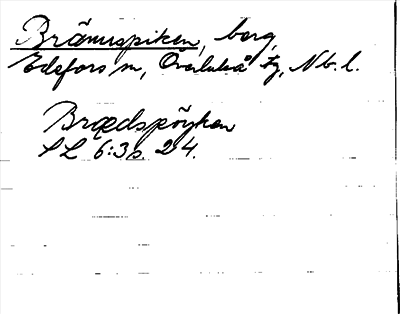 Brännspiken, berg,
Edefors sn, Överluleå tg, Nb. l.
Brædspöyken
SL 6:3 s. 24.